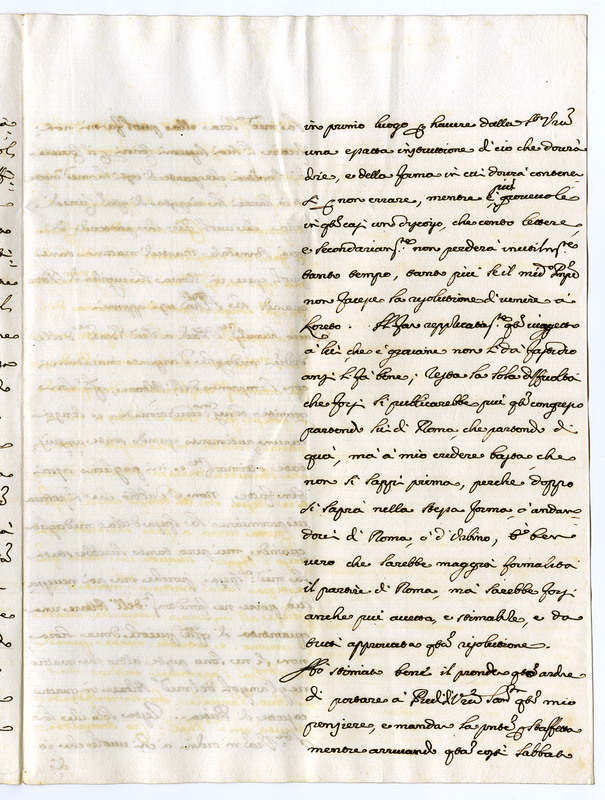 in primo luogo p havere dalla S.tà V.ra
una esatta instruttione di ciò che dovrà
dire, e della forma in cui dovrà contener
si p non errare, mentre è più giovevole
in q.ti casi un discorso, che cento lettere,
e secondariam.te non perderà inutilm.te
tanto tempo, tanto più se il med.mo
non facesse la risolutione di venire a
Loreto. Il far replicatam.te q.to viaggetto
à lui, che è giovane non li dà fastidio
anzi li fà bene; resta la sola difficoltà
che forsi si publicarebbe più q.to congresso
partendo lui di Roma, che partendo di
quà, mà à mio credere basta che
non si sappi prima, perche doppo
si saprà nella stessa forma ò andan-
dovi di Roma ò d'Urbino, è ben
vero che sarebbe maggior formalità
il partire di Roma, mà sarebbe forsi
anche più accetta, e stimabile, e da
tutti approvata q.ta risolutione.
Hò stimato bene il prender q.to ardire
di portare à Piedi di V.ra San.tà q.to mio
pensiere, e mandar la p.nte p staffetta
mentre arrivando q.ta costì sabbato